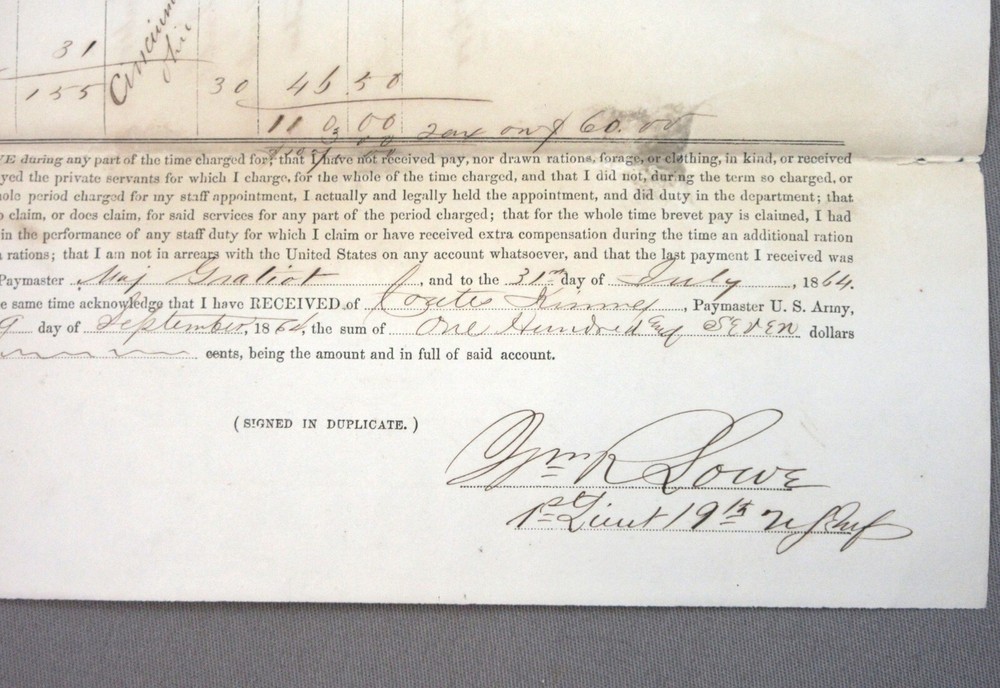 31
155 Cincinnati Ohio 30 46.50
110.00 Tax on $60.00
3 00
VE during any part of the time charged for; that I have not received pay, nor drawn rations, forage, or clothing, in kind, or received
yed the private servants for which I charge, for the whole of the time charged, and that I did not, during the term so charged, or
ole period charged for my staff appointment, I actually and legally held the appointment, and did duty in the department; that
o claim, or does claim, for said services for any part of the period charged; that for the whole time brevet pay is claimed, I had
in the performance of any staff duty for which I claim or have received extra compensation during the time an additional ration
rations; that I am not in arrears with the United States on any account whatsoever, and that the last payment I received was
Paymaster Maj Gratiot, and to the 31st day of July, 1864.
e same time acknowledge that I have RECEIVED of Coates Kinney, Paymaster U. S. Army,
9 day of September, 1864, the sum of One Hundred and SEVEN dollars
cents, being the amount and in full of said account.
(SIGNED IN DUPLICATE.)
Wm R Lowe
1st Lieut 19th US Inf